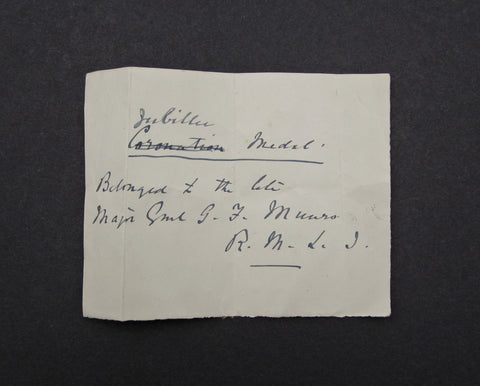 Jubilee
Coronation Medal.
Belonged to the late
Major Genl G. F. Munro
R. M. L. I.